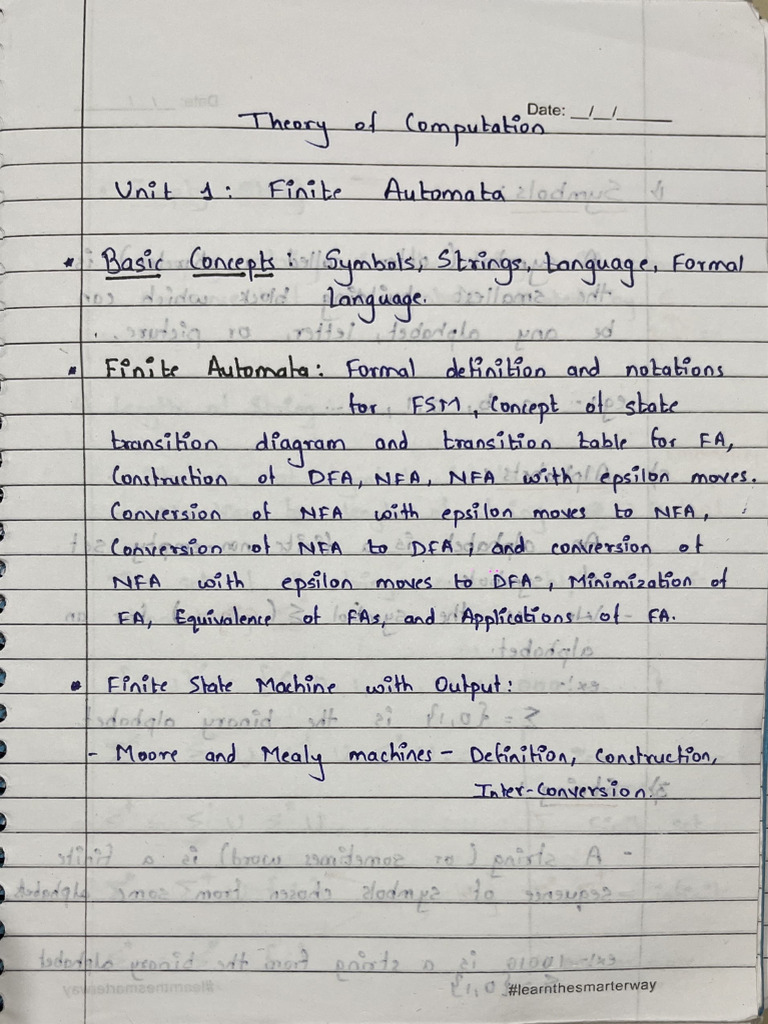 Date: _/_/____
Theory of Computation
Unit 1: Finite Automata
* Basic Concepts: Symbols, Strings, Language, Formal
Language.
* Finite Automata: Formal definition and notations
for FSM, Concept of state
transition diagram and transition table for FA,
Construction of DFA, NFA, NFA with epsilon moves.
Conversion of NFA with epsilon moves to NFA,
Conversion of NFA to DFA, and conversion of
NFA with epsilon moves to DFA, Minimization of
FA, Equivalence of FAs, and Applications of FA.
* Finite State Machine with Output:
- Moore and Mealy machines - Definition, Construction,
Inter-Conversion.
#learnthesmarterway